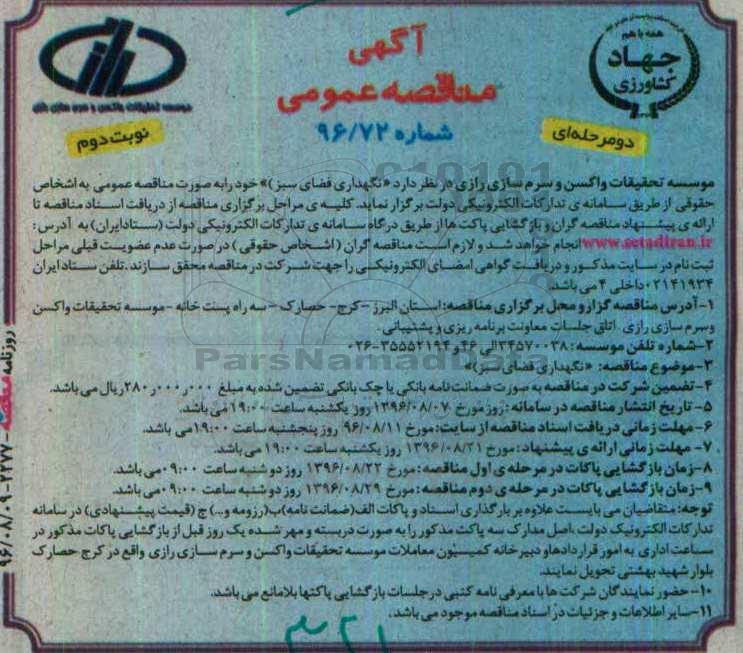 همه با هم
جهاد
کشاورزی
آگهی
مناقصه عمومی
شماره ۹۶/۷۲
موسسه تحقیقات واکسن و سرم سازی رازی
نوبت دوم
دومرحله‌ای
موسسه تحقیقات واکسن و سرم سازی رازی در نظر دارد «نگهداری فضای سبز)» خود را به صورت مناقصه عمومی به اشخاص
حقوقی از طریق سامانه ی تدارکات الکترونیکی دولت برگزار نماید. کلیه ی مراحل برگزاری مناقصه از دریافت اسناد مناقصه تا
ارائه ی پیشنهاد مناقصه گران و بازگشایی پاکت ها از طریق درگاه سامانه ی تدارکات الکترونیکی دولت (ستادایران) به آدرس:
www.setadiran.ir انجام خواهد شد و لازم است مناقصه گران (اشخاص حقوقی) در صورت عدم عضویت قبلی مراحل
ثبت نام در سایت مذکور و دریافت گواهی امضای الکترونیکی را جهت شرکت در مناقصه محقق سازند. تلفن ستاد ایران
۰۲۱۴۱۹۳۴ داخلی ۴ می باشد.
۱-آدرس مناقصه گزار و محل برگزاری مناقصه: استان البرز -کرج- حصارک - سه راه پست خانه -موسسه تحقیقات واکسن
وسرم سازی رازی اتاق جلسات معاونت برنامه ریزی و پشتیبانی.
۲-شماره تلفن موسسه: ۳۴۵۷۰۰۳۸ الی ۴۶ و ۳۵۵۵۲۱۹۴-۰۲۶
ParsNamadData
۳-موضوع مناقصه: «نگهداری فضای سبز)»
۴-تضمین شرکت در مناقصه به صورت ضمانت نامه بانکی یا چک بانکی تضمین شده به مبلغ ۲۸۰٫۰۰۰٫۰۰۰ ریال می باشد.
۵- تاریخ انتشار مناقصه در سامانه: روز مورخ ۱۳۹۶/۰۸/۰۷ روز یکشنبه ساعت ۱۹:۰۰ می باشد.
۶-مهلت زمانی دریافت اسناد مناقصه از سایت: مورخ ۹۶/۰۸/۱۱ روز پنجشنبه ساعت ۱۹:۰۰ می باشد.
۷- مهلت زمانی ارائه ی پیشنهاد: مورخ ۱۳۹۶/۰۸/۲۱ روز یکشنبه ساعت ۱۹:۰۰ می باشد.
۸-زمان بازگشایی پاکات در مرحله ی اول مناقصه: مورخ ۱۳۹۶/۰۸/۲۲ روز دو شنبه ساعت ۰۹:۰۰ می باشد.
۹-زمان بازگشایی پاکات در مرحله ی دوم مناقصه: مورخ ۱۳۹۶/۰۸/۲۹ روز دو شنبه ساعت ۰۹:۰۰ می باشد.
توجه: متقاضیان می بایست علاوه بر بارگذاری اسناد و پاکات الف(ضمانت نامه)ب(رزومه و...) ج (قیمت پیشنهادی) در سامانه
تدارکات الکترونیک دولت ،اصل مدارک سه پاکت مذکور را به صورت دربسته و مهر شده یک روز قبل از بازگشایی پاکات مذکور در
ساعت اداری به امور قراردادها و دبیرخانه کمیسیون معاملات موسسه تحقیقات واکسن و سرم سازی رازی واقع در کرج حصارک
بلوار شهید بهشتی تحویل نمایند.
۱۰-حضور نمایندگان شرکت ها با معرفی نامه کتبی در جلسات بازگشایی پاکتها بلامانع می باشد.
۱۱-سایر اطلاعات و جزئیات در اسناد مناقصه موجود می باشد.
روزنامه مناقصه - ۲۲۷۷ - ۹۶/۰۸/۰۹